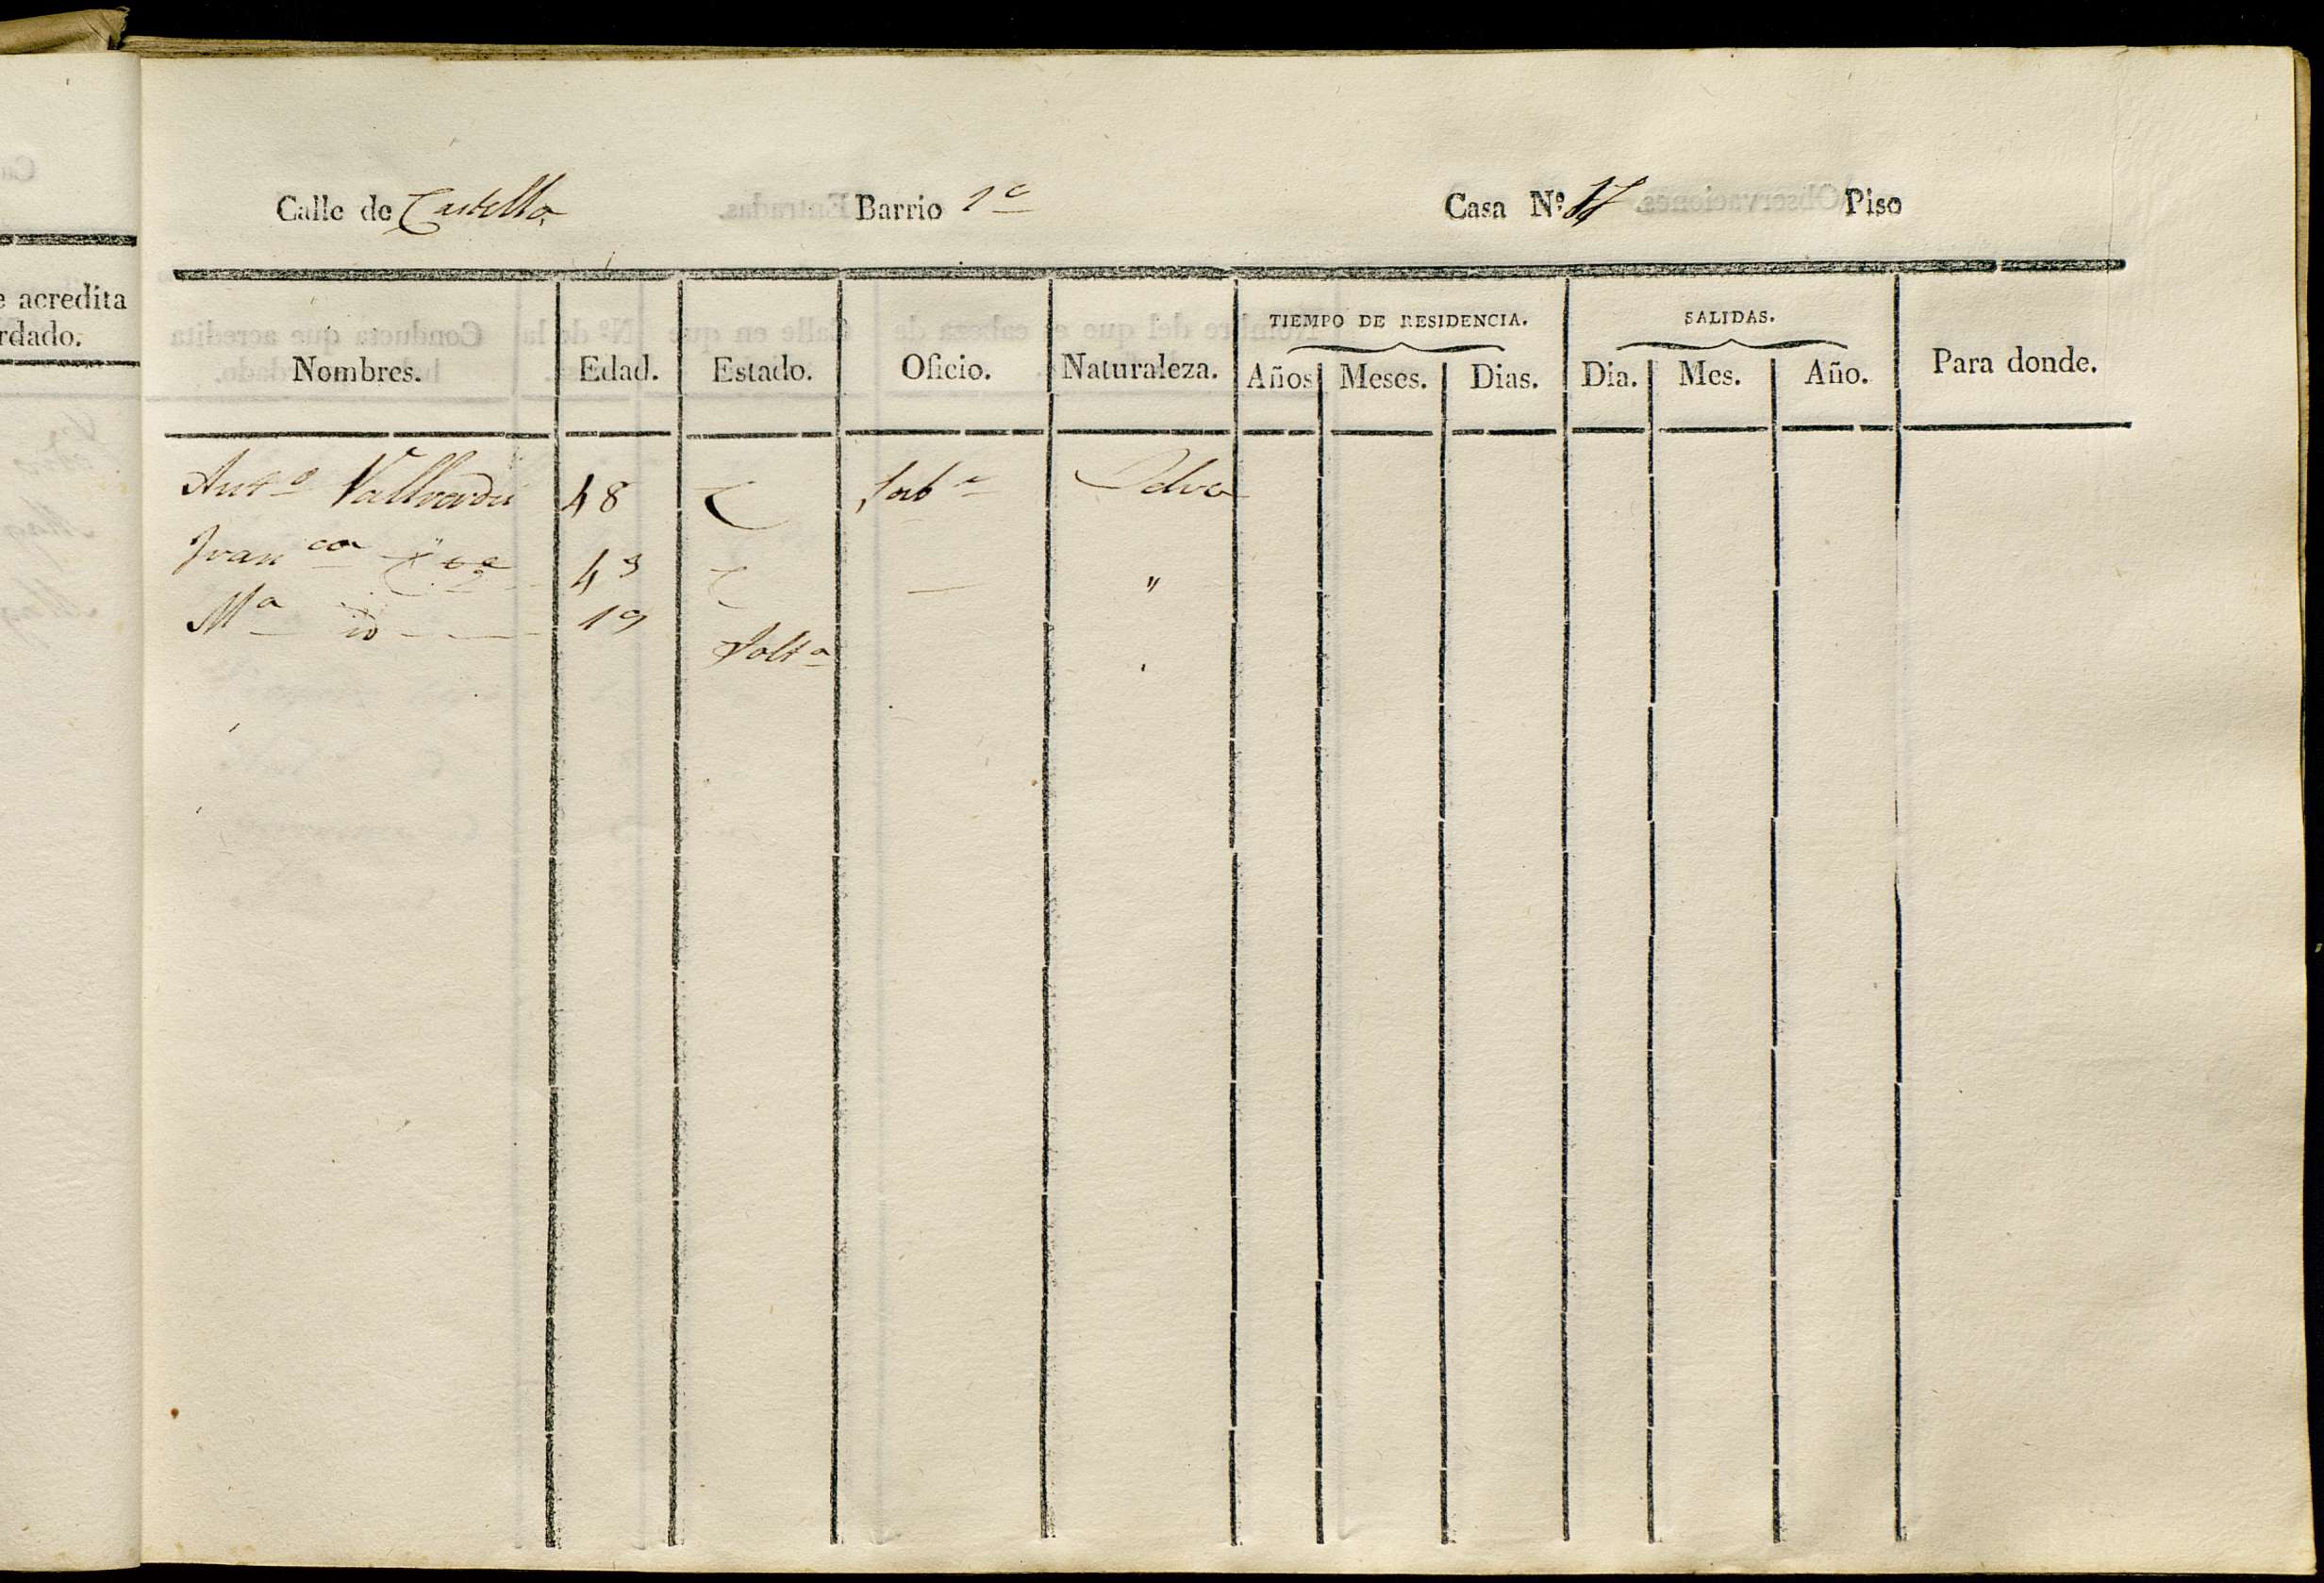 e acredita
rdado.
Calle de Castello Barrio 1º Casa Nº 17 Piso
Nombres. Edad. Estado. Oficio. Naturaleza. TIEMPO DE RESIDENCIA. Años Meses. Dias. SALIDAS. Dia. Mes. Año. Para donde.
Antº Vallverdu 48 C Lab.r Selva
Franca 43 C — "
Mª id 19 Solta